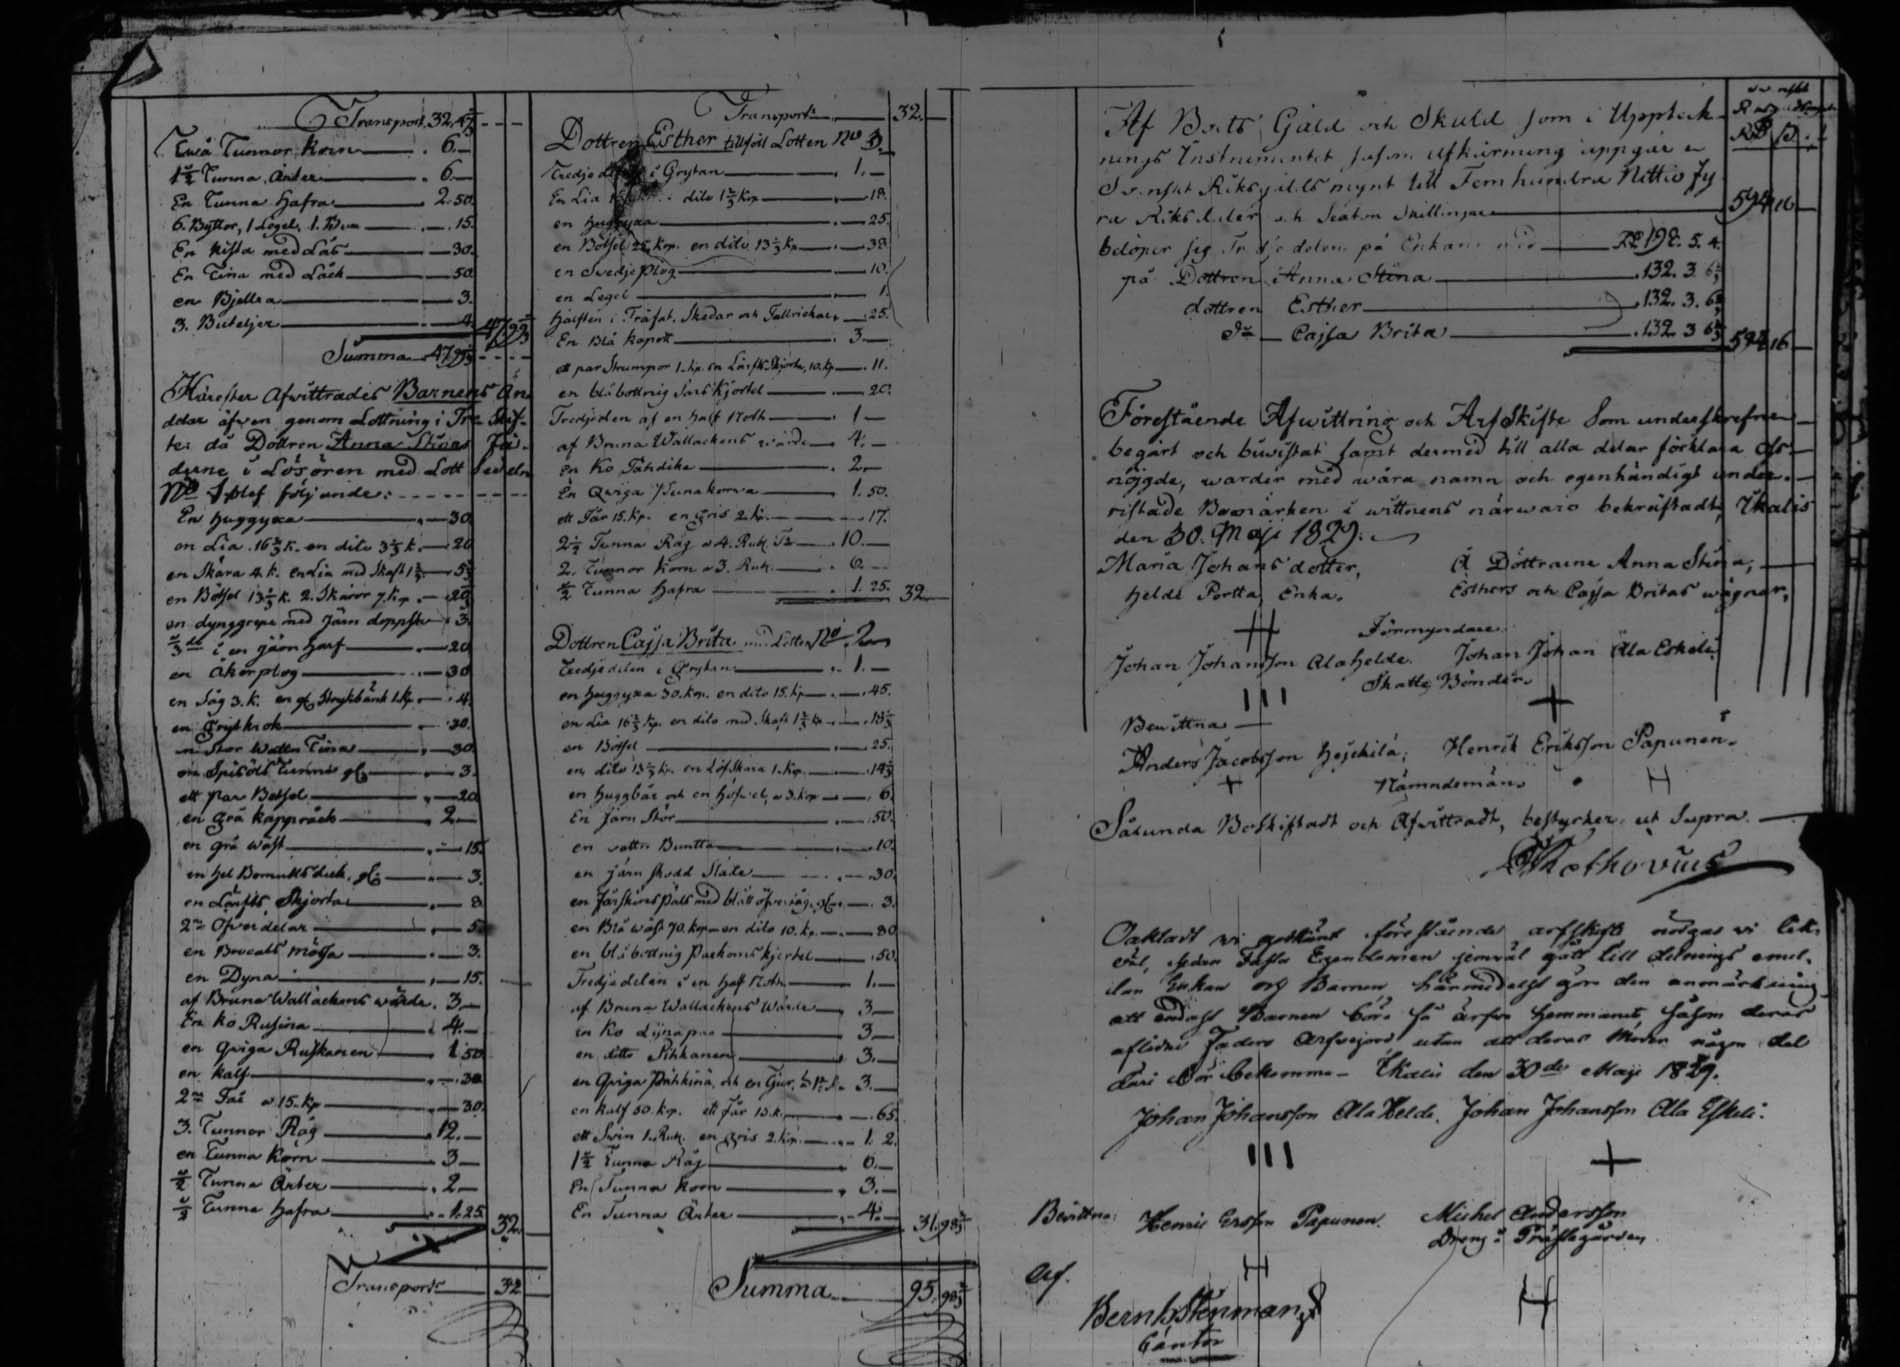 Transport 32.47⅔
Twå Tunnor Korn 6.
1½ Tunna Ärter 6.
En Tunna Hafra 2.50.
6. Byttor, 1 Legel, 15.
En Kista med Lås 30.
En Tina med Låck 50.
en Bjellra 3.
3. Buteljer 4. 47,99⅔
Summa 47,99⅔
Härefter Afwittrades Barnens An-
delar äfwen genom Lottning i Tre Skif-
ten då Dottren Anna Stinas
derne i Lösören med Lott Sedeln
No 1 blef följande:
En huggyxa 30.
en Lia 16⅔ k. en dito 3⅓ k. 20
en Skära 4. k. en Lia med Skaft 1⅓ 5⅓
en Bötsel 13⅓ k. 2. Skäror 7. Kp. 20⅓
en dynggrepe med järn doppsko 3.
⅓ de i en järn harf 20
en åkerplog 30
en Såg 3. k. en gl. Strykbänk 1 kp. 4.
en Grytkrok 30.
en Stor Watten Tina 30.
en Spisöls Tunna gl. 3.
ett par Betsel 20
en grå kappråck 2.
en grå wäst 15.
en hel Bomulls duk, gl. 3.
en Lärfts Skjorta 8
2ne Öfverdelar 5.
en Brocads mössa 3.
en Dyna 15.
af Bruna Wallackens wärde 3.
En Ko Rusina 4.
en Qviga Ruskanen 1.50
en kalf 30.
2ne Får a 15. Kp 30.
3. Tunnor Råg 12.
en Tunna Korn 3
½ Tunna Ärter 2
½ Tunna Hafra 1.25. 32.
Transport 32
Transport 32.
Dottren Esther tillföll Lotten No 3.
Tredje delen i Grytan 1.
En Lia dito 1⅔ Kp 18.
en huggyxa 25.
en Bötsel 25 Kop. en dito 13⅓ Kp 38
en Svedjeplog 10.
en Legel 1.
hälften i Träfat, Skedar och Tallrickar 25.
En Blå kapott 3
ett par Strumpor 1. kp. en Lärfts Skjorta, 10. kp 11.
en blåbottnig Sars Kjortel 20.
Tredjeden af en half Noth 1
af Bruna Wallackens wärde 4.
En Ko Tähdike 2.
En Qwiga Sunakorva 1.50.
ett Får 15. Kp. en gris 2. kp. 17.
2½ Tunna Råg a 4. Rub. Tn 10.
2. Tunnor Korn a 3. Rub. 6.
½ Tunna Hafra 1.25. 32
Dottren Cajsa Brita med Lotten No 2
Tredjedelen i Grytan 1.
en huggyxa 30. kop. en dito 15. kp 45.
en Lia 16⅔ kp. en dito med Skaft 1⅔ kp 18⅓
en Bötsel 25.
en dito 13⅓ kp. en Löfskära 1. Kop. 14⅓
en huggbår och en höfvel, a 3. Kop 6.
En järn Stör 50.
en vatten Buntta 10.
en järn skodd Släde 30.
en Fårskins päls med blått öfverlag, gl. 3.
en Blå wäst 70. kop en dito 10. kp. 80
en blåbottnig Parkoms kjortel 50.
Tredjedelen i en half Noth 1.
af Bruna Wallackens Wärde 3
En Ko Lijnapää 3
en ditto Pihkanen 3.
en Qwiga Pähkinä, och en Tjur, 3.
en kalf 50. kop. ett Får 15. k. 65.
ett Swin 1. Rub. en gris 2. kp. 1. 2.
1½ Tunna Råg 6.
En Tunna Korn 3.
En Tunna Ärter 4. 31,98⅔
Summa 95.98⅔
Af Boets Gäld och Skuld som i Upptek-
nings Instrumentet såsom afkårtning uppgår i
Svenskt Riksgälds mynt till Femhundra Nittio Fy-
ra Riksdaler och Sexton Skillingar 594 16
belöper sig Tredjedelen på Enkans del RD 198. 5. 4.
på Dottren Anna Stina 132. 3. 6⅔
dottren Esther 132. 3. 6⅔
do Cajsa Brita 132. 3 6⅔ 594 16
Föreståënde Afwittring och ArfSkifte Som underskrefne
begärt och biwistat samt dermed till alla delar förklara oss
nöjgde, warder med wåra namn och egenhändigt under-
ristade Bomärken i wittnens närwaro bekräftadt, Ikalis
den 30. Maji 1829.
Maria Johans dotter,
Helde Portta Enka.
Å Döttrarne Anna Stina,
Esthers och Cajsa Britas wägnar,
Förmyndare
Johan Johansson AlaHelde. Johan Johan Ala Eskeli.
Skatte Bönder
Bewittna
Anders Jacobsson Heiskilä; Henrik Eriksson Papunen.
Nämndemän
Sålunda BoSkiftadt och Afwittradt, bestyrker ut Supra.
Oaktadt wi godkänt föreståënde arfskifte nödgas vi lik-
väl, sedan Fasta Egendomen jemväl gått till delnings emel-
lan Enkan och Barnen härmedelst göra den anmärkning
att endast Barnen böra få ärfva hemmanet, såsom deras
aflidne Faders Arfvejord utan att deras Moder någon del
deri bör bekomma. Ikalis den 30de Maji 1829.
Johan Johansson Ala Helde. Johan Johansson Ala Eskeli.
Bevittna: Henric Ersson Papunen. Michel Andersson
Dreng i Prästegården
Af.
Bernh Stenman
Cantor